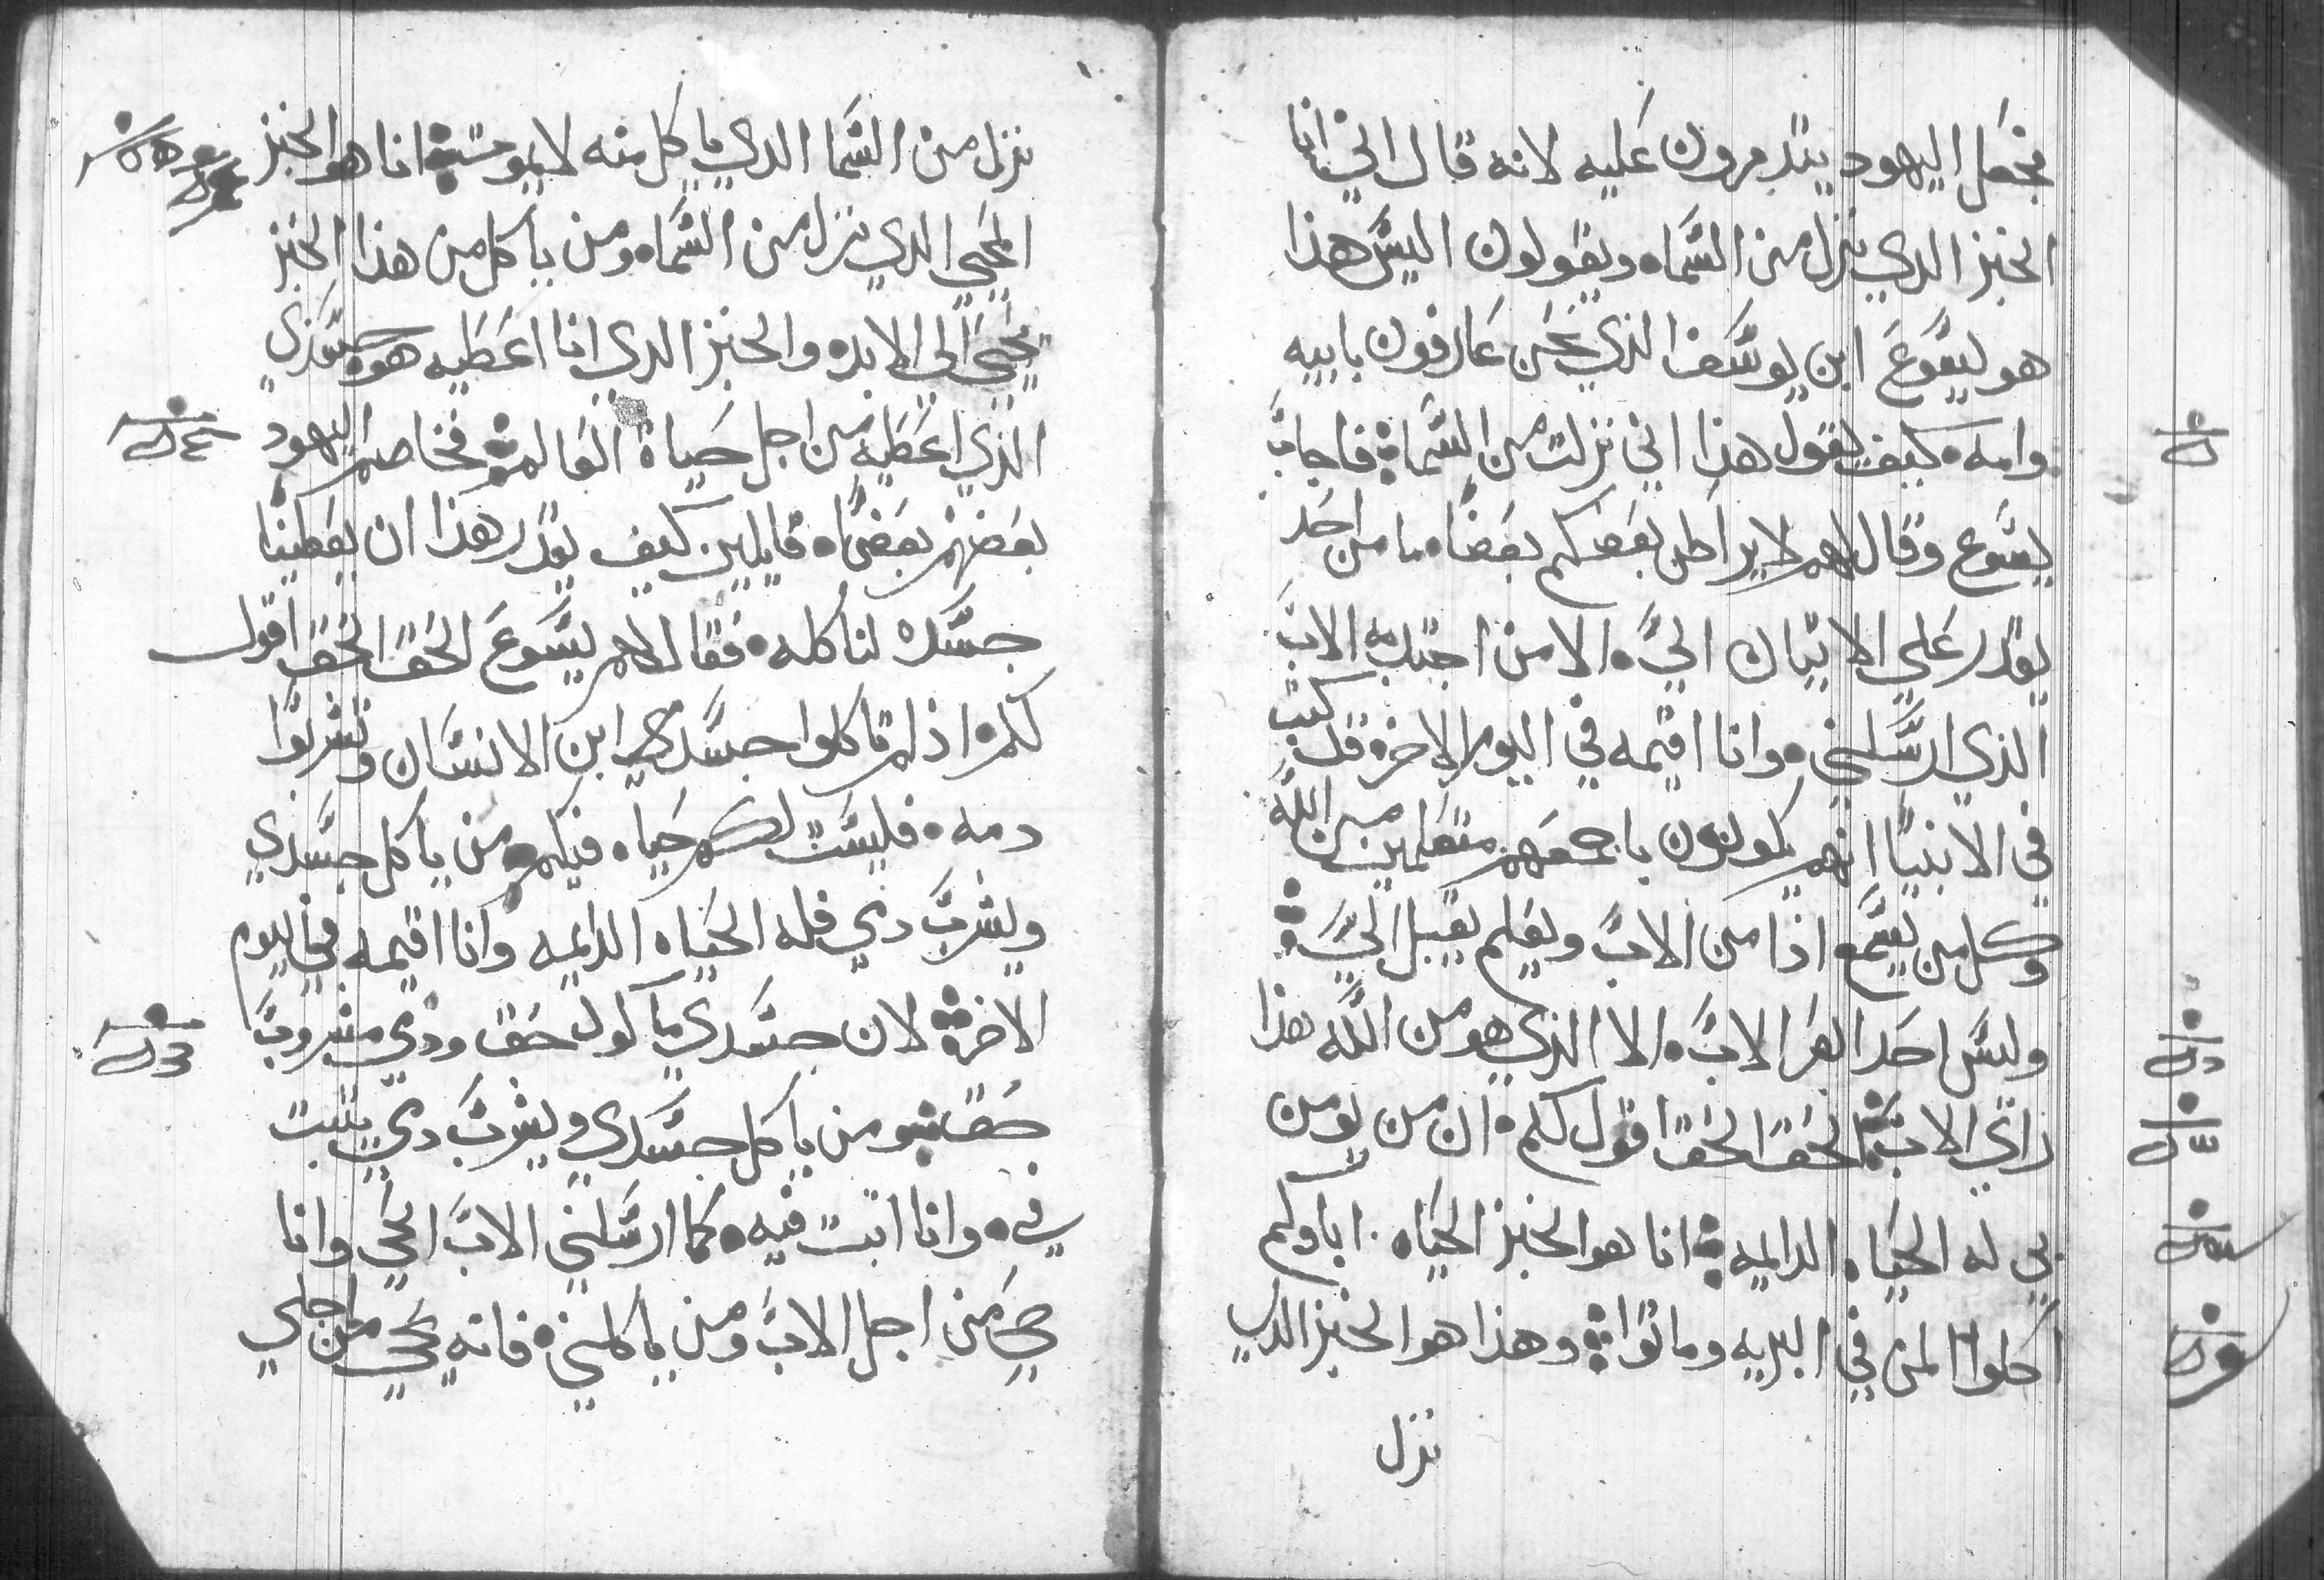 فجعل اليهود يتدمرون عليه لانه قال اني انا
الخبز الدي نزل من السما، ويقولون اليس هذا
هو ليسوع ابن يوسف الذي نحن عارفون بابيه
وامه. كيف يقول هذا اني نزلت من السما فاجاب
يسوع وقال لهم لا يراطن بعضكم بعضا، ما من احد
يقدر على الاتيان الي، الا من اجتدبه الاب
الذي ارسلني. وانا اقيمه في اليوم الاخر، قد كتب
في الانبيا انهم يكونون باجمعهم متعلمين من الله
وكل من يسمع اذا من الاب ويعلم يقبل الي
وليس احد ابصر الاب، الا الذي هو من الله هذا
راي الاب الحق الحق اقول لكم. ان من يومن
بي له الحياه الدايمه انا هو الخبز الحياه. اباوكم
اكلوا المن في البريه وماتوا وهذا هو الخبز الدي
نزل
نزل من السما الدي ياكل منه لا يموت انا هو الخبز
المحيي الدي نزل من السما، ومن ياكل من هذا الخبز
يحيي الي الابد، والخبز الدي انا اعطيه هو جسدي
الذي اعطيه من اجل حياة العالم فخاصم اليهود
بعضهم بعضا، قايلين كيف يقدر هذا ان يعطينا
جسده لناكله. فقال لهم يسوع الحق الحق اقول
لكم، اذ لم تاكلوا جسد ابن الانسان وتشربوا
دمه. فليست لكم حياه فيكم ومن ياكل جسدي
ويشرب دمي فله الحياه الدايمه وانا اقيمه في اليوم
الاخر لان جسدي ماكول حق ودمي مشروب
حق ومن ياكل جسدي ويشرب دمي يتبت
في، وانا اتبت فيه. كما ارسلني الاب الحي وانا
حي من اجل الاب ومن ياكلني. فانه يحيي من اجلي